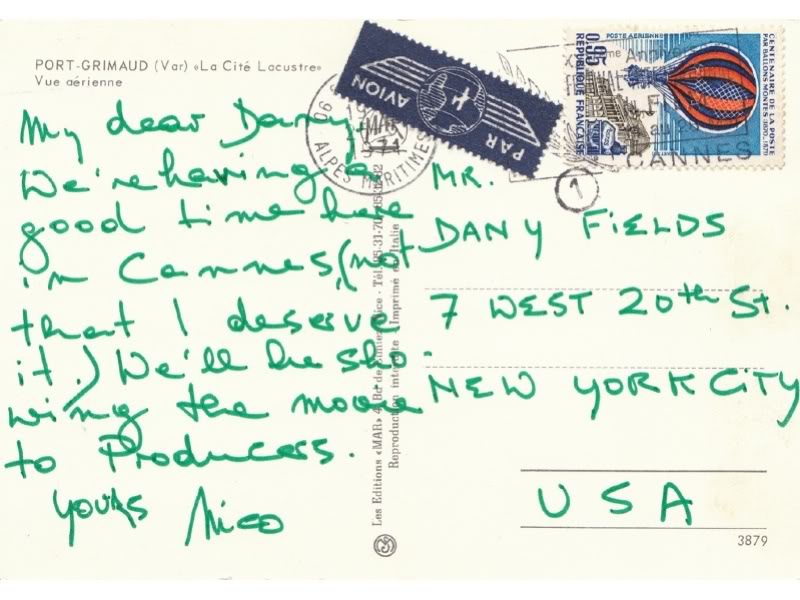 PORT-GRIMAUD (Var) «La Cité Lacustre»
Vue aérienne
My dear Dany,
We're having a
good time here
in Cannes, (not
that I deserve
it.) We'll be sho-
wing the movie
to Producers.
Yours Nico
PAR AVION
06
ALPES MARITIMES
0,95
POSTE AERIENNE
REPUBLIQUE FRANÇAISE
CENTENAIRE DE LA POSTE
PAR BALLONS MONTES (1870-1871)
CANNES
1
MR.
DANY FIELDS
7 WEST 20th St.
NEW YORK CITY
USA
Les Editions «MAR»
Reproduction interdite - Imprimé en Italie
3879